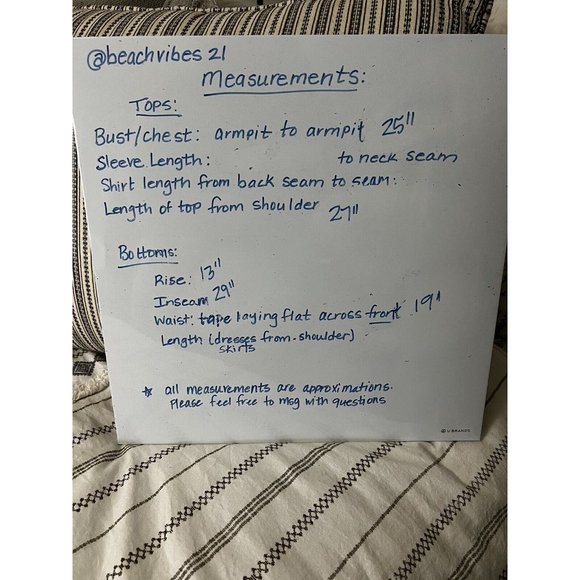 @beachvibes 21
Measurements:
TOPS:
Bust/chest: armpit to armpit 25"
Sleeve Length: to neck seam
Shirt length from back seam to seam:
Length of top from shoulder 27"
Bottoms:
Rise: 13"
Inseam 29"
Waist: tape laying flat across front 19"
Length (dresses from shoulder)
skirts
☆ all measurements are approximations.
Please feel free to msg with questions
U BRANDS